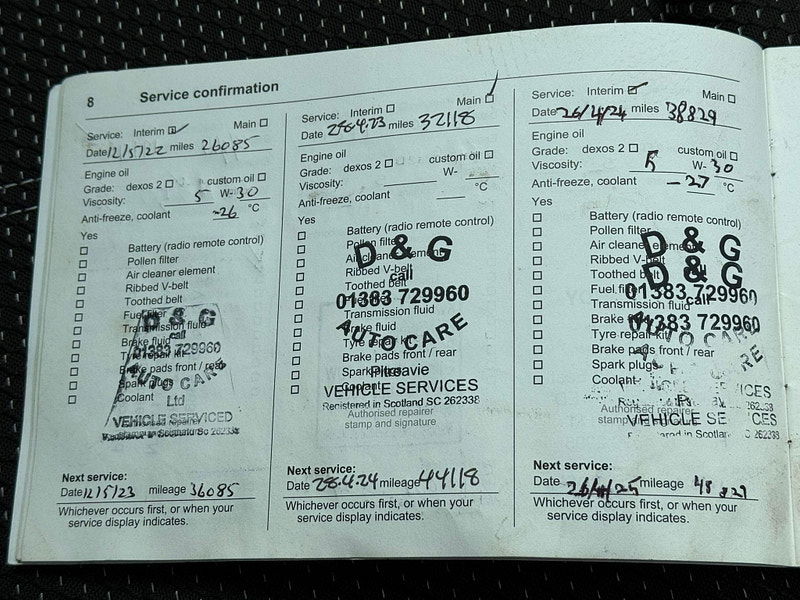 8 Service confirmation
Service: Interim Main
Date 12/5/22 miles 26085
Engine oil
Grade: dexos 2 custom oil
Viscosity: 5 W- 30
Anti-freeze, coolant -26 °C
Yes
Battery (radio remote control)
Pollen filter
Air cleaner element
Ribbed V-belt
Toothed belt
Fuel filter
Transmission fluid
Brake fluid
Tyre repair kit
Brake pads front / rear
Spark plugs
Coolant
D & G
call
01383 729960
AUTO CARE
Ltd
VEHICLE SERVICED
Next service:
Date 12/5/23 mileage 36085
Whichever occurs first, or when your
service display indicates.
Service: Interim Main
Date 28.4.23 miles 32118
Engine oil
Grade: dexos 2 custom oil
Viscosity: W-
Anti-freeze, coolant °C
Yes
Battery (radio remote control)
Pollen filter
Air cleaner element
Ribbed V-belt
Toothed belt
Fuel filter
Transmission fluid
Brake fluid
Tyre repair kit
Brake pads front / rear
Spark plugs
Coolant
D & G
call
01383 729960
AUTO CARE
Pitreavie
VEHICLE SERVICES
Registered in Scotland SC 262338
Authorised repairer
stamp and signature
Next service:
Date 28.4.24 mileage 44118
Whichever occurs first, or when your
service display indicates.
Service: Interim Main
Date 26/4/24 miles 38829
Engine oil
Grade: dexos 2 custom oil
Viscosity: 5 W- 30
Anti-freeze, coolant -27 °C
Yes
Battery (radio remote control)
Pollen filter
Air cleaner element
Ribbed V-belt
Toothed belt
Fuel filter
Transmission fluid
Brake fluid
Tyre repair kit
Brake pads front / rear
Spark plugs
Coolant
D & G
D & G
01383 729960
call
01383 729960
AUTO CARE
VEHICLE SERVICES
Authorised repairer
Next service:
Date 26/4/25 mileage 48829
Whichever occurs first, or when your
service display indicates.